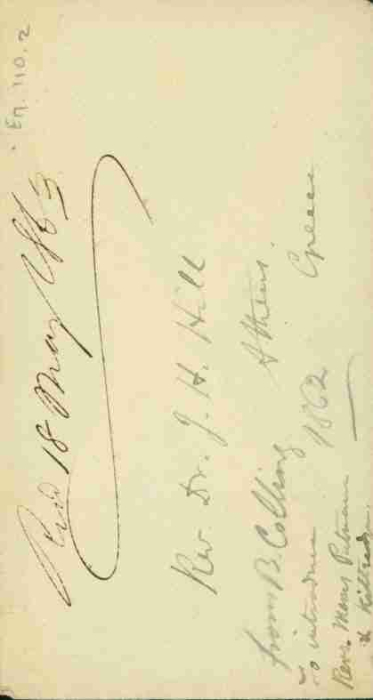 En. 110.2
Recd 18 May 1863
Rev. Dr. J. H. Hill
Athens.
Greece
from B Collins 1862
To introduce
Revs. Messrs Putnam
&